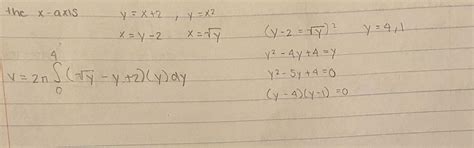 the x-axis y = x+2 , y = x²
x = y-2 x = √y (y-2 = √y)² y = 4, 1
y² - 4y + 4 = y
V = 2π ∫₀⁴ (√y - y + 2)(y) dy y² - 5y + 4 = 0
(y-4)(y-1) = 0